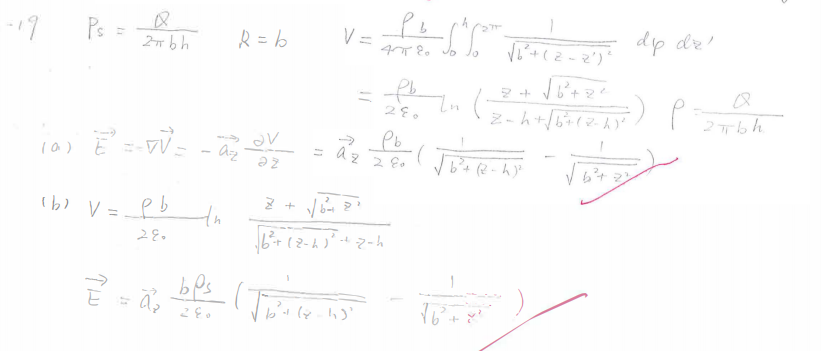 -19 ρs = Q / 2πbh R = b V = ρb / 4πε₀ ∫₀ʰ ∫₀²π 1 / √(b²+(z-z')²) dφ dz'
= ρb / 2ε₀ ln ( z + √(b²+z²) / z-h+√(b²+(z-h)²) ) ρ = Q / 2πbh
(a) E⃗ = -∇V⃗ = -a⃗z ∂V/∂z = a⃗z ρb / 2ε₀ ( 1 / √(b²+(z-h)²) - 1 / √(b²+z²) )
(b) V = ρb / 2ε₀ ln z + √(b²+z²) / √(b²+(z-h)²) + z-h
E⃗ = a⃗z bρs / 2ε₀ ( 1 / √(b²+(z-h)²) - 1 / √(b²+z²) )